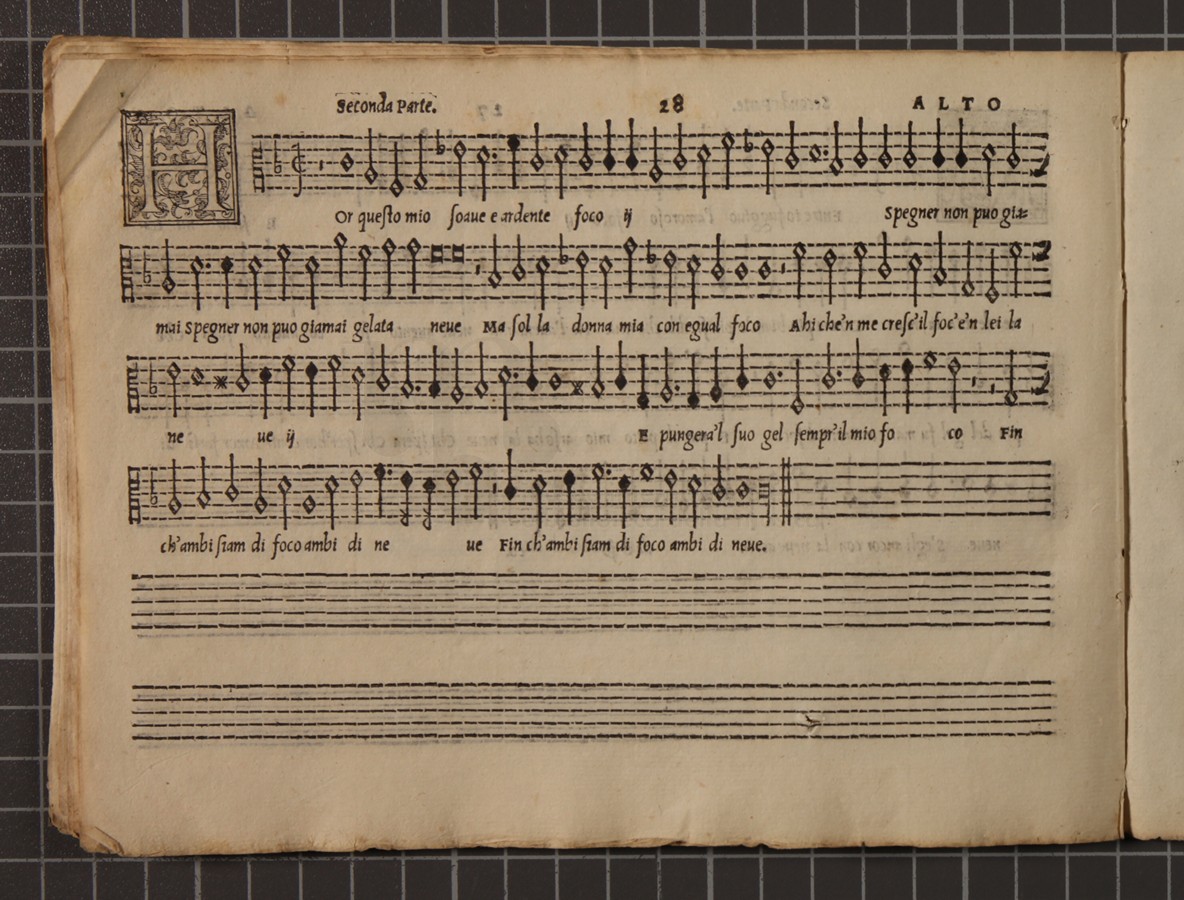 Seconda Parte. 28 ALTO
HOr queſto mio ſoaue e ardente foco ij Spegner non puo gia=
mai Spegner non puo giamai gelata neue Ma ſol la donna mia con egual foco Ahi che'n me creſc'il foc'e'n lei la
ne ue ij E pungera'l ſuo gel ſempr'il mio fo co Fin
ch'ambi ſiam di foco ambi di ne ue Fin ch'ambi ſiam di foco ambi di neue.